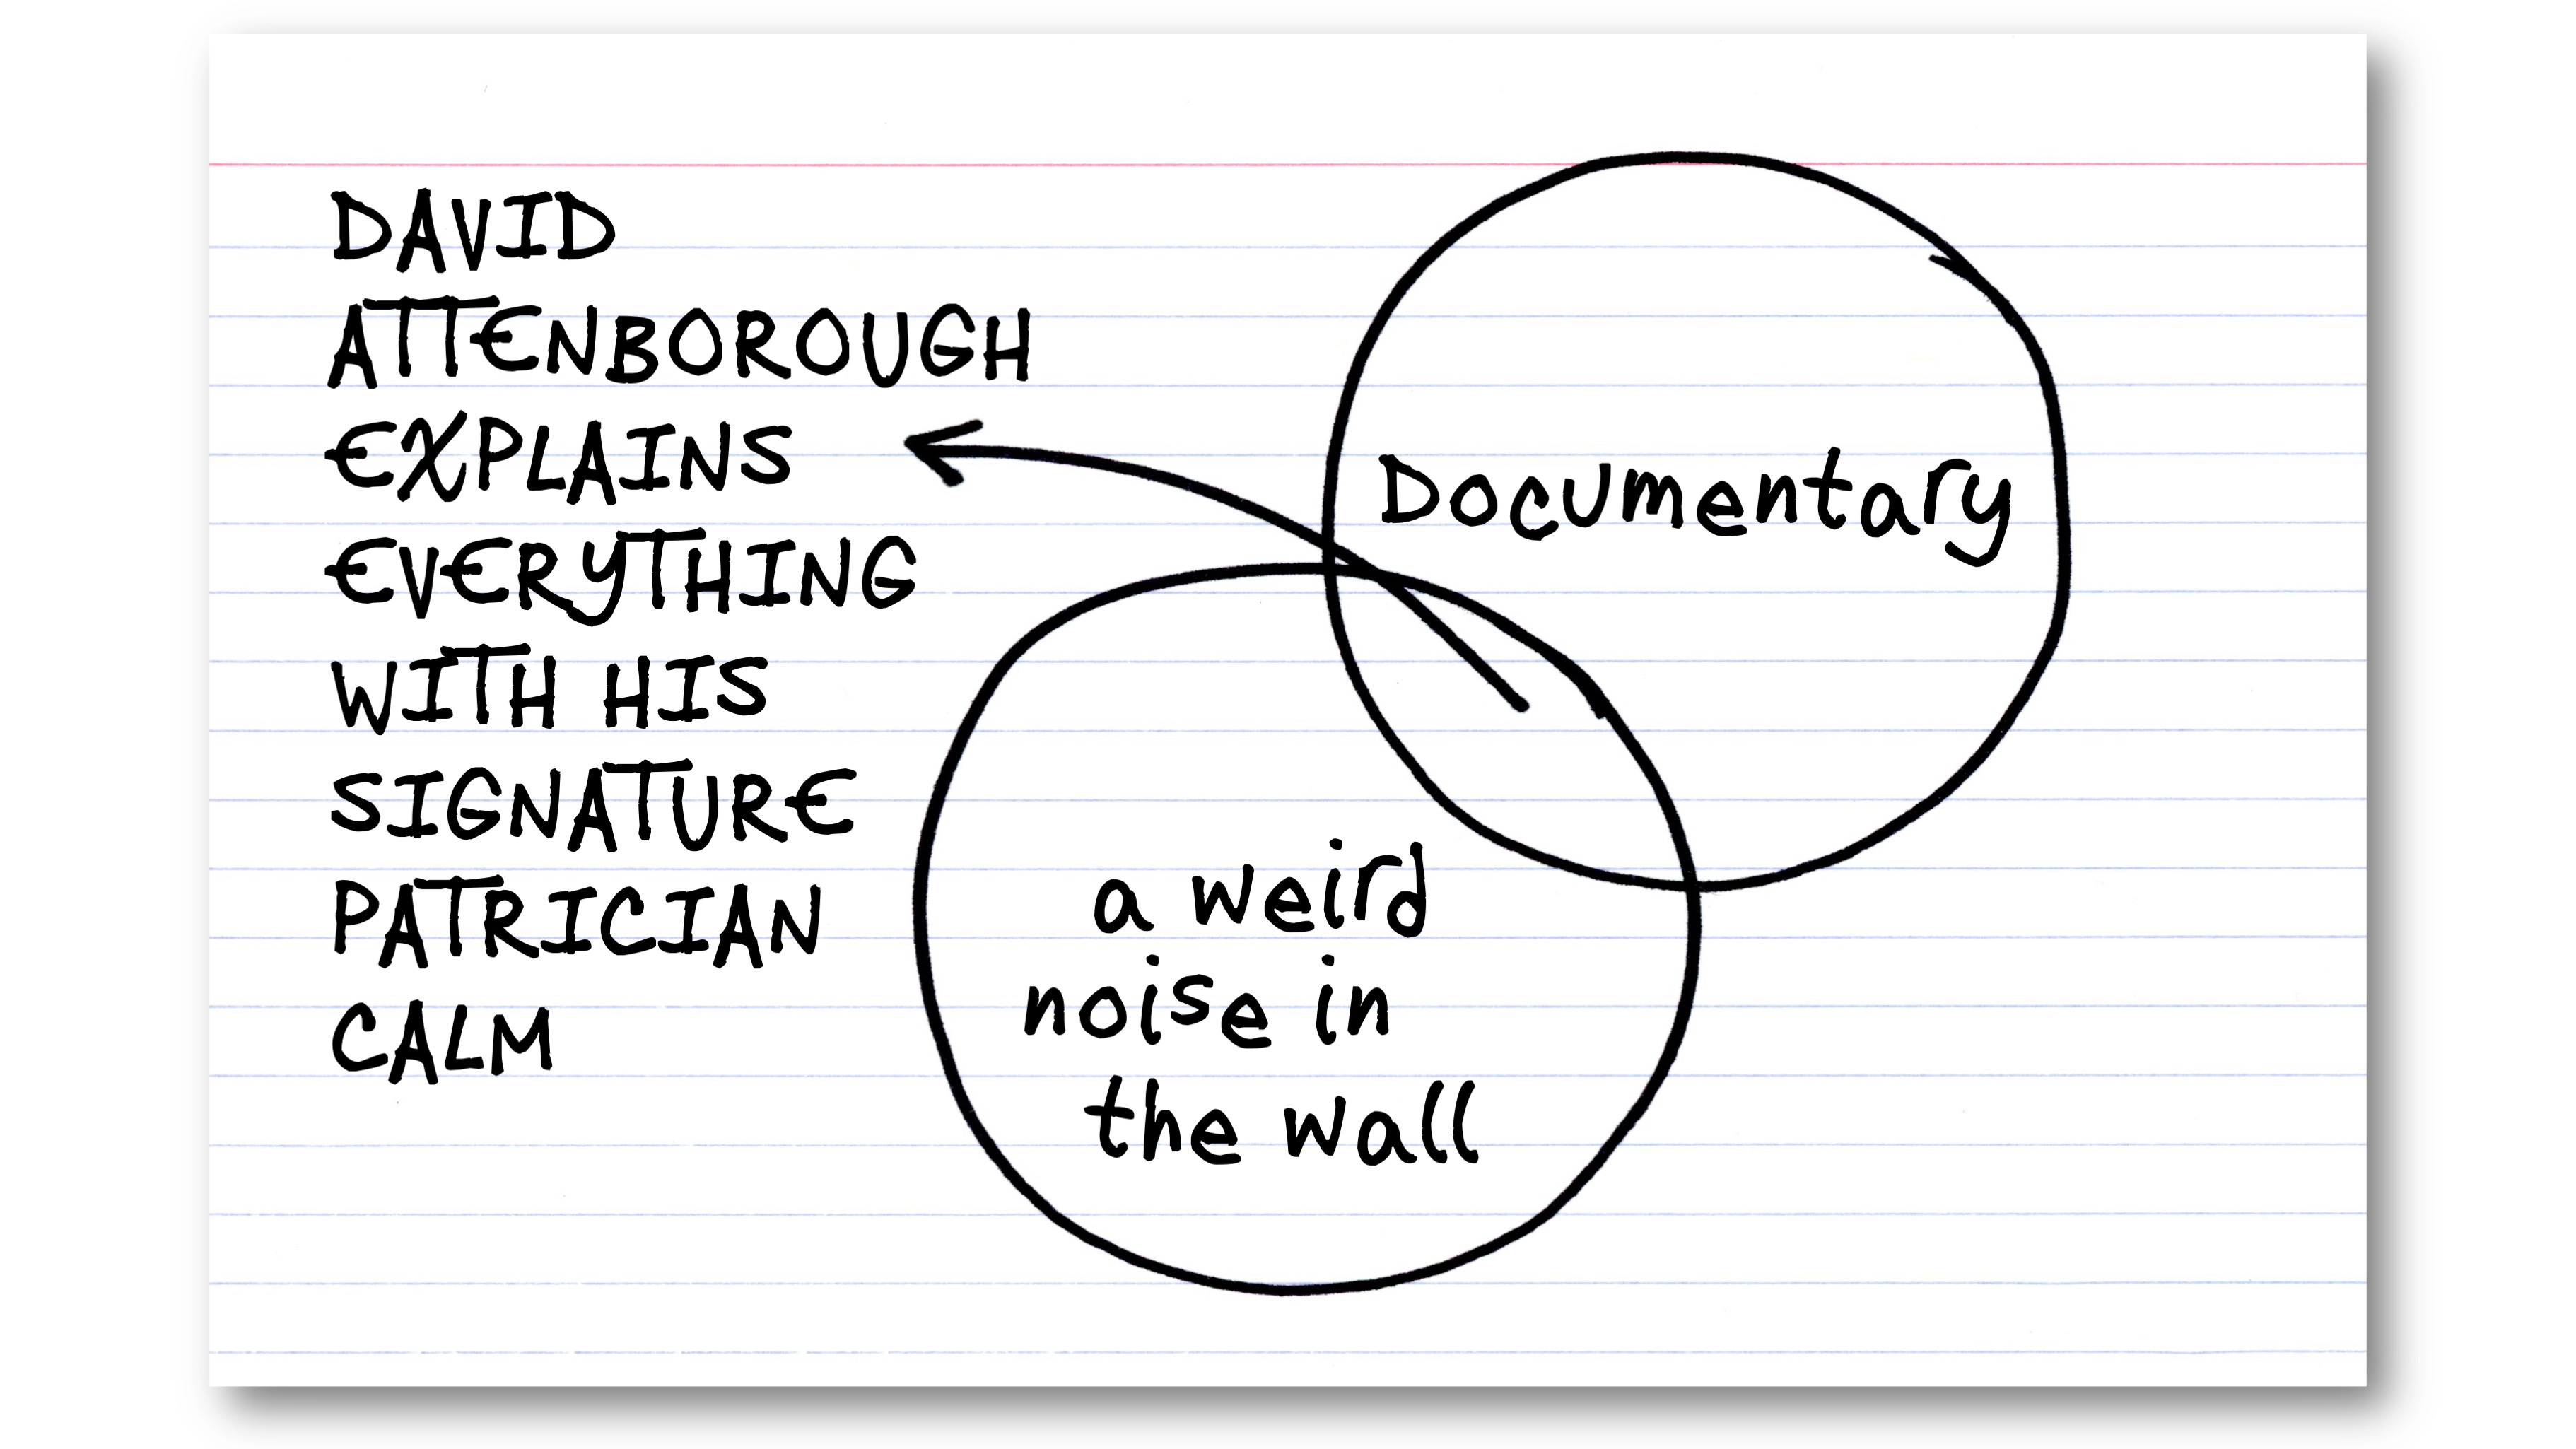 DAVID
ATTENBOROUGH
EXPLAINS
EVERYTHING
WITH HIS
SIGNATURE
PATRICIAN
CALM
Documentary
a weird
noise in
the wall